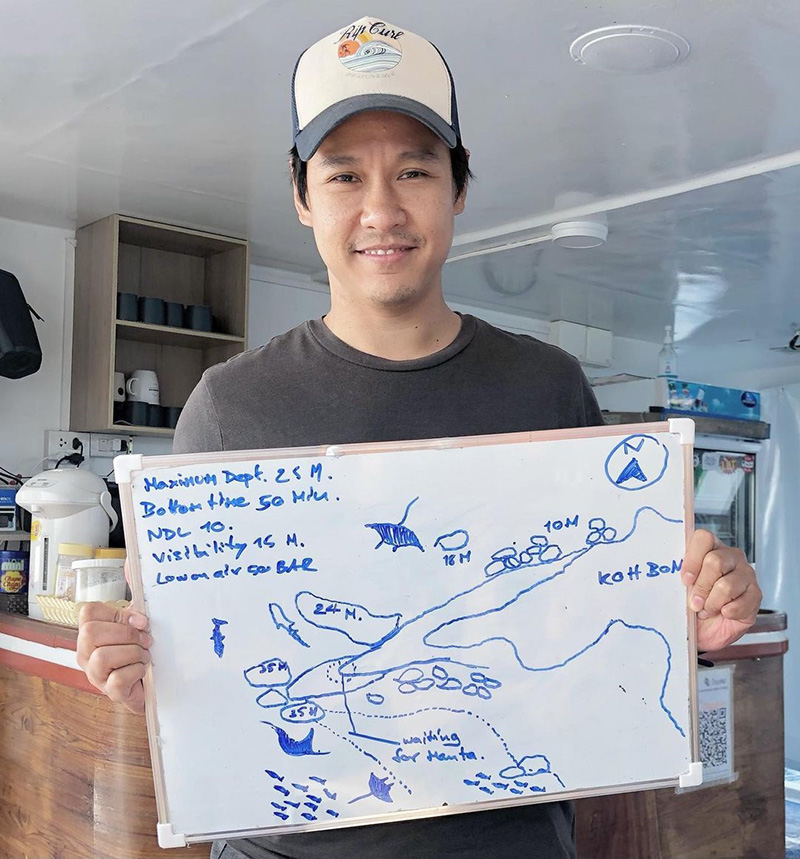 Rip Curl
Maximum Dept. 25 M.
Bottom time 50 Min.
NDL 10.
Visibility 15 M.
Low on air 50 BAR
N
10 M
18 M
KOH BON
24 M.
35 M
25 M
waiting
for Manta.